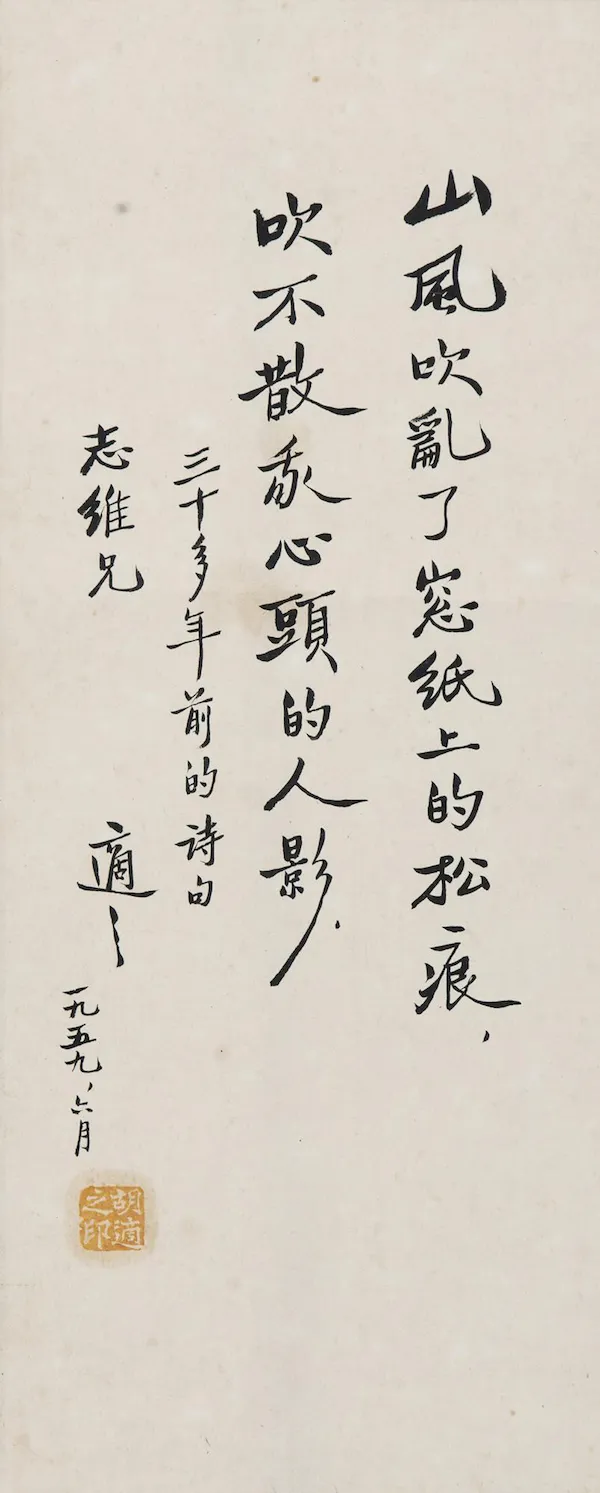 山風吹亂了窓紙上的松痕，
吹不散我心頭的人影，
三十多年前的詩句
志維兄
適之
一九五九、六月
胡適之印